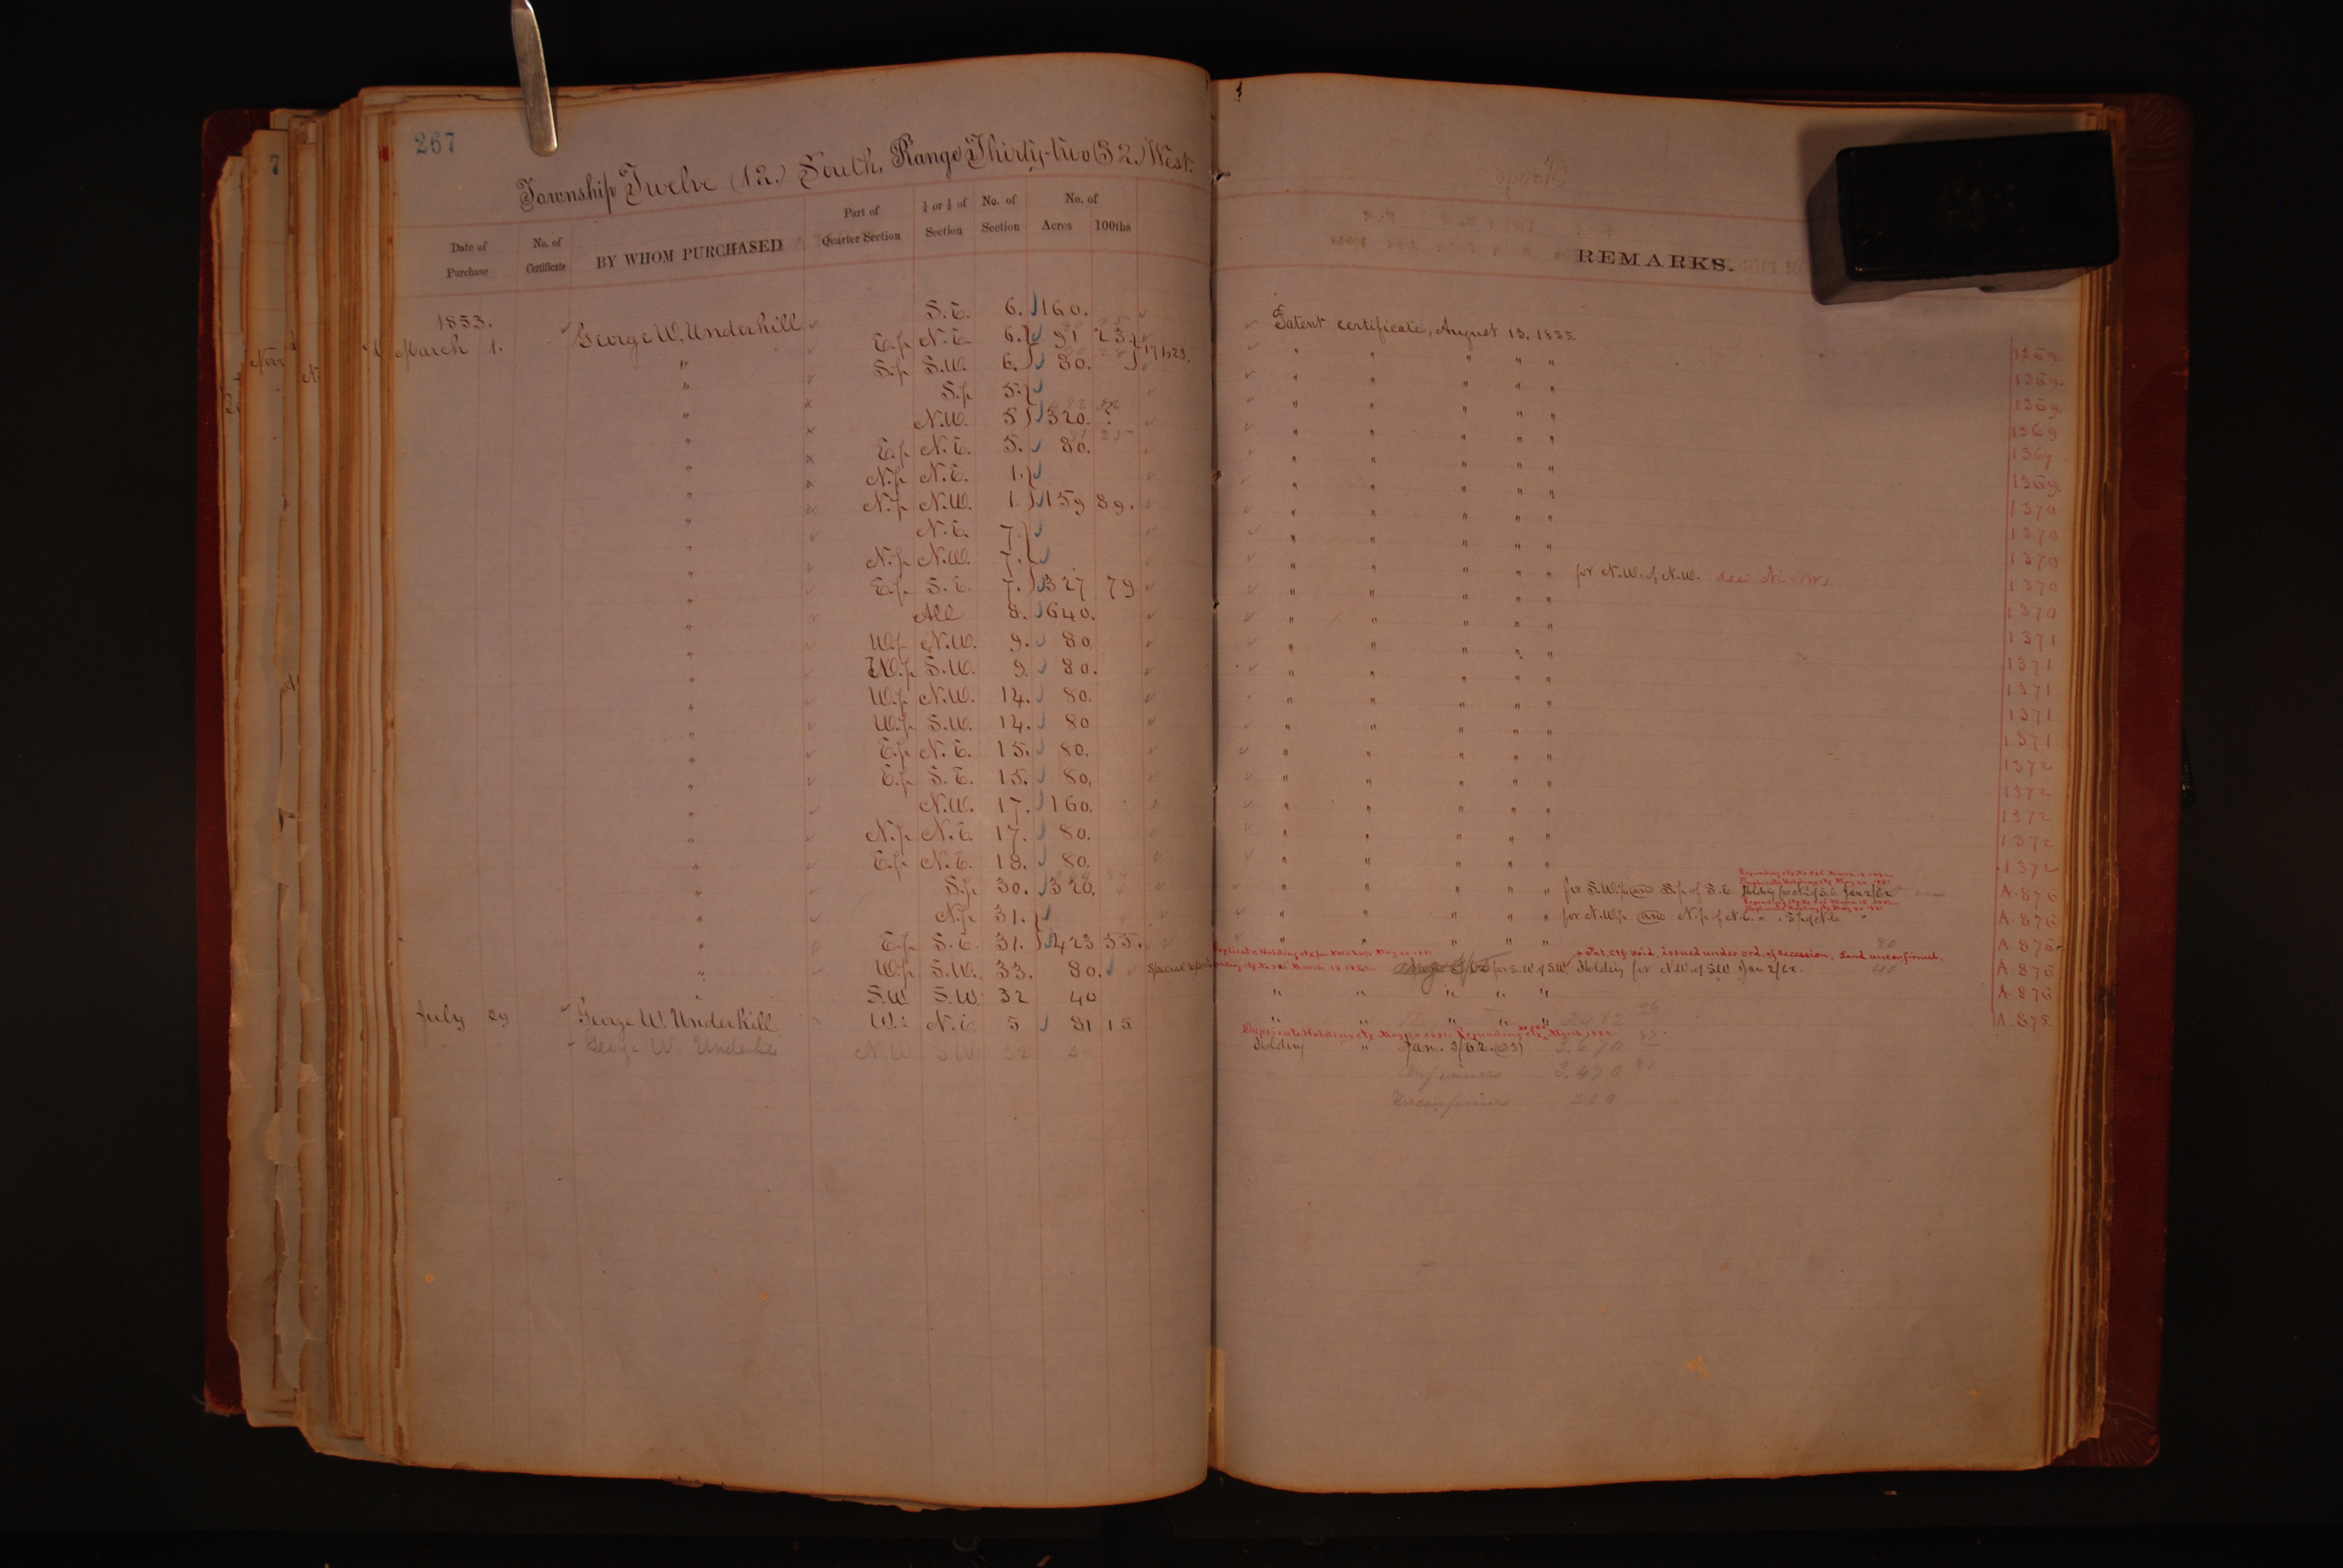 267
Township Twelve (12.) South, Range Thirty-two (32.) West.
Date of Purchase | No. of Certificate | BY WHOM PURCHASED | Part of Quarter Section | ½ or ¼ of Section | No. of Section | No. of Acres | 100ths | REMARKS.
1853.
March 1. George W. Underhill S.E. 6. 160. Patent certificate, August 13, 1855. 1369
" E.½ N.E. 6. 91 23 " " " " " 1369.
" S.½ S.W. 6. 80. 171.23. " " " " " 1369
" S.½ 5. " " " " " 1369
" N.W. 5 320. ? " " " " " 1369
" E.½ N.E. 5. 80. " " " " " 1369.
" N.½ N.E. 1. " " " " " 1370
" N.½ N.W. 1. 159 89. " " " " " 1370
" N.E. 7. " " " " " 1370
" N.½ N.W. 7. " " " " " for N.W. of N.W. 1370
" E.½ S.E. 7. 327 79 " " " " " 1370
" All 8. 640. " " " " " 1371
" W.½ N.W. 9. 80 " " " " " 1371
" W.½ S.W. 9. 80. " " " " " 1371
" W.½ N.W. 14. 80. " " " " " 1371
" W.½ S.W. 14. 80 " " " " " 1371
" E.½ N.E. 15. 80. " " " " " 1372
" E.½ S.E. 15. 80. " " " " " 1372
" N.W. 17. 160. " " " " " 1372
" N.½ N.E. 17. 80. " " " " " 1372
" E.½ N.E. 18. 80. " " " " " 1372
" S.½ 30. 320. " " " " " for S.W.¼ and S.½ of S.E. Holding Jan 2/62 A. 876
" N.½ 31. " " " " " for N.W.¼ and N.½ of N.E. " A. 876
" E.½ S.E. 31. 423 35. " " " " " A. 876
Pat. ctf. void, issued under ord. of Secession. Land unconfirmed. 80
" W.½ S.W. 33. 80. Special for S.W. of S.W. Holding for N.W. of S.W. Jan 2/62. 40 A. 876
" S.W. S.W. 32 40 " " " " " A. 876
July 29 George W. Underhill W.½ N.E. 5 81 15 " " " " " 2482 A. 875
Duplicate Holding ctf.
George W. Underhill N.W. S.W. 32 4 Holding " Jan. 3/62 3.670
3.470
Unconfirmed 200